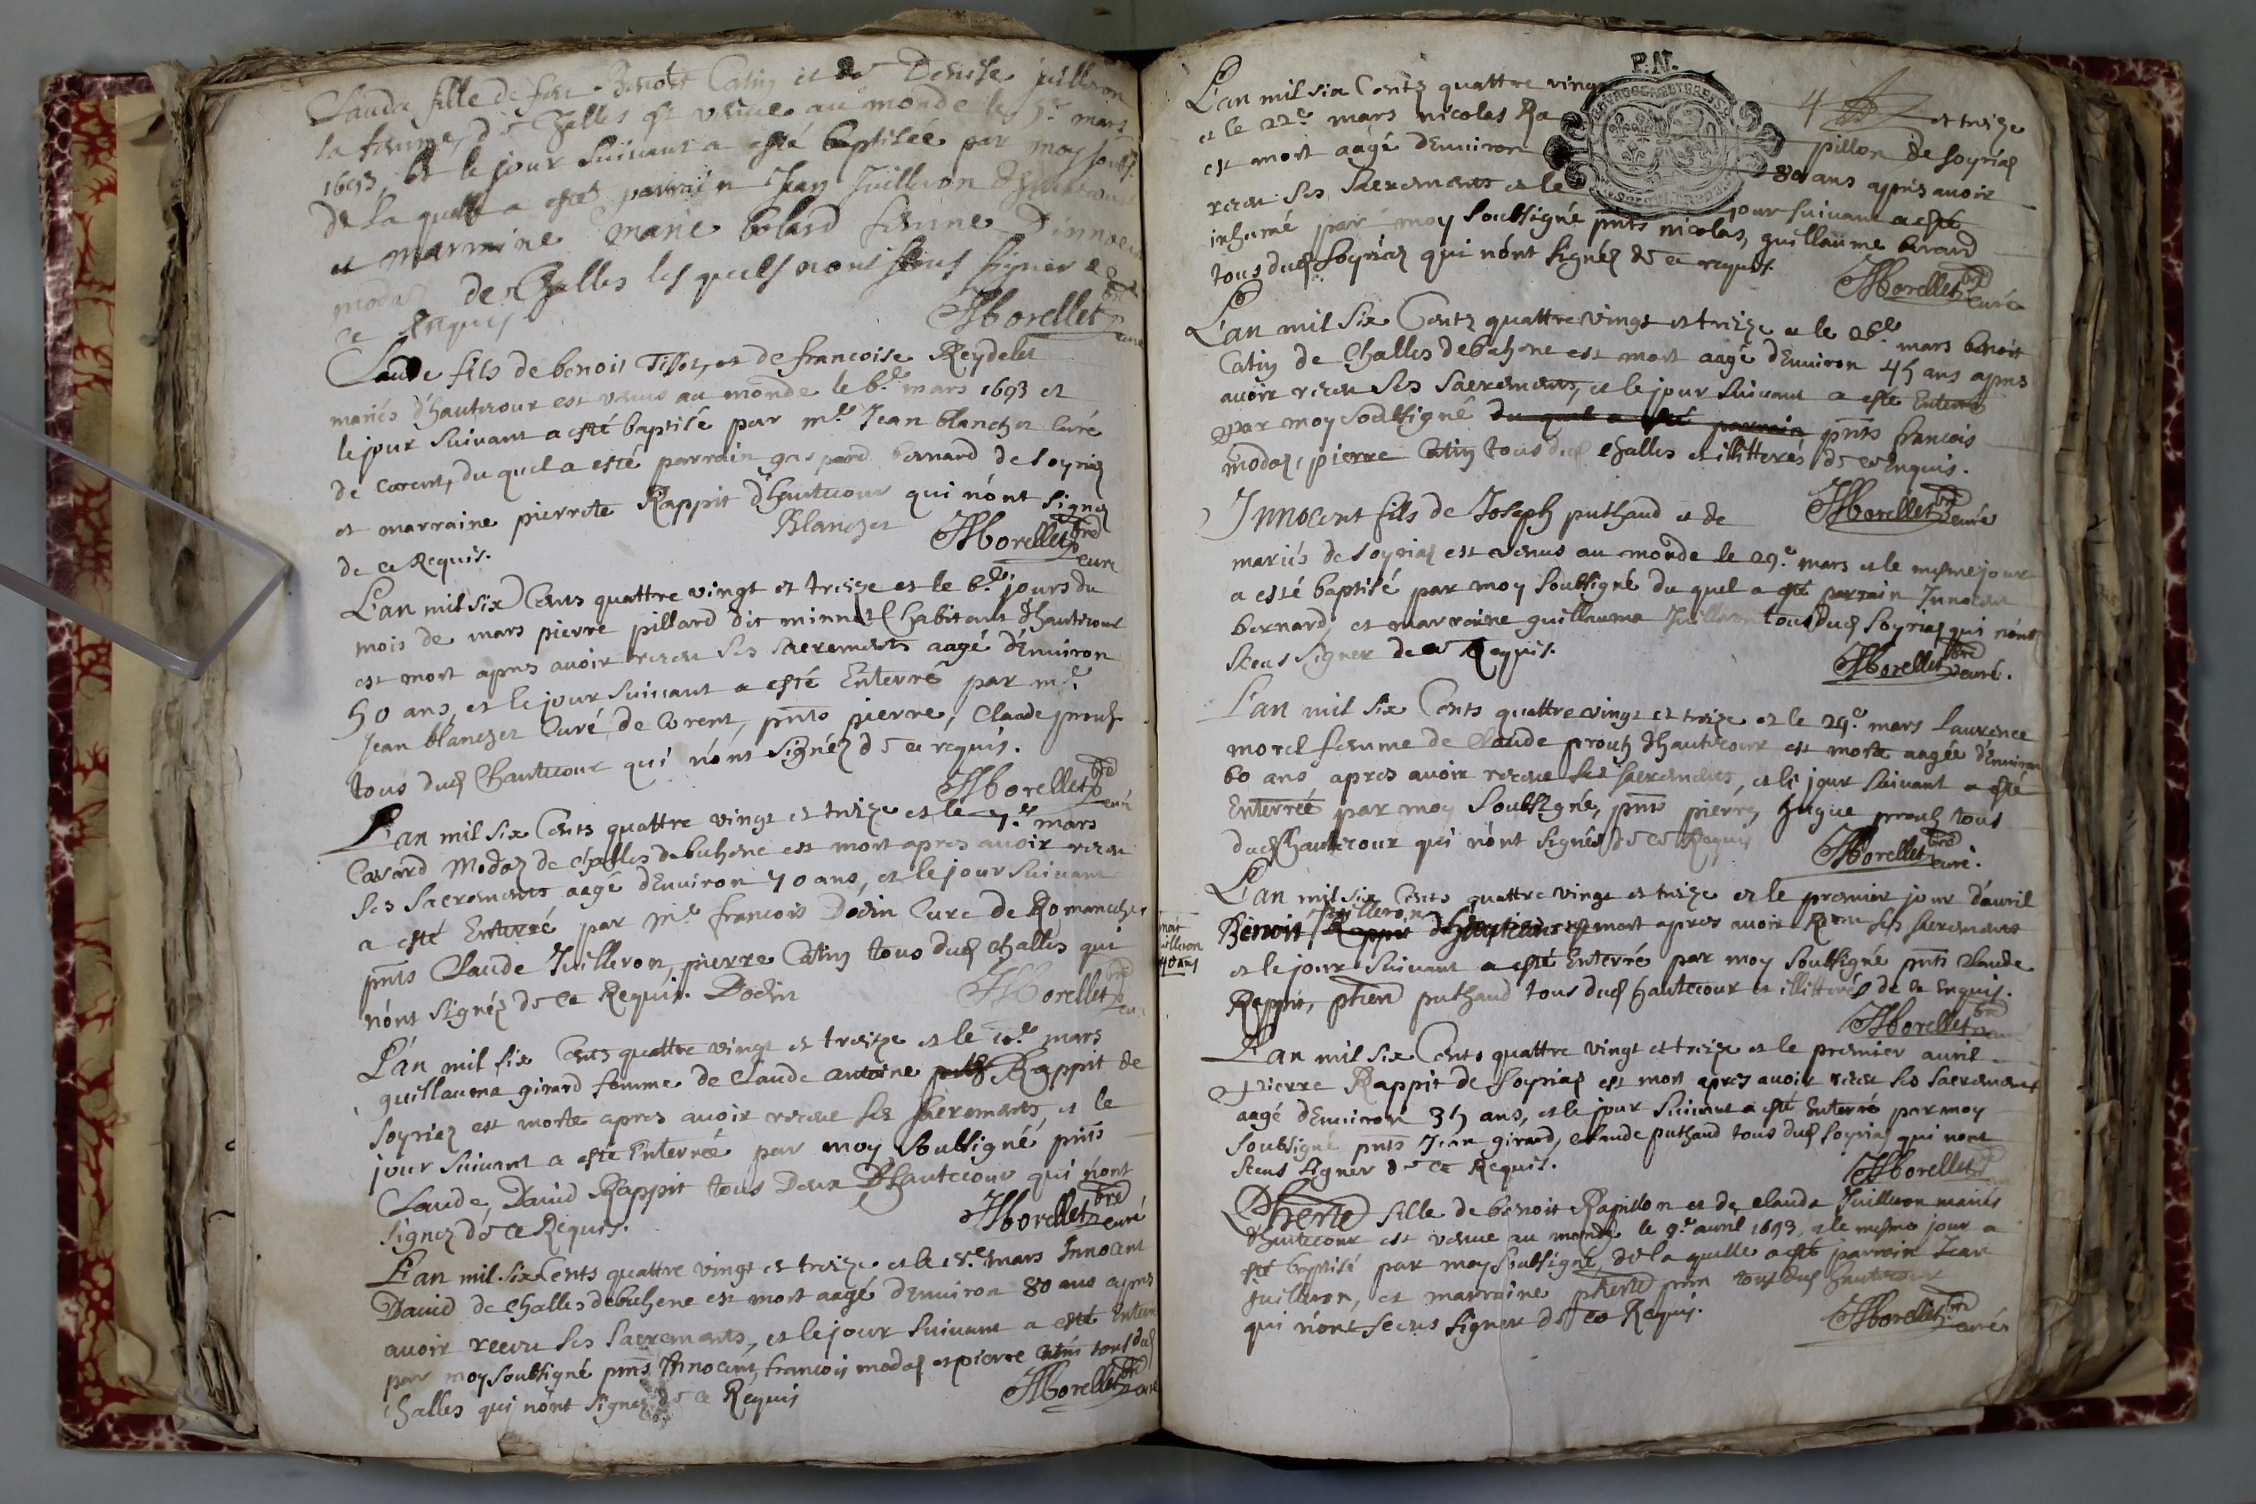 Claude fille de feu Benoit Catin et de Denise Juilleron
sa femme de Challes est venue au monde le 5e mars
1693, et le jour suivant a esté baptisée par moy soubs.
de la quelle a esté parrain Jean Juilleron
et marrine marie bolard femme D'innocent
modas de Challes les quels n'ont sceus signer de
ce Requis.
JHborellet pbre curé
Claude fils de benoit Tissot, et de francoise Reydelet
mariés d'hautecour est venus au monde le 6e mars 1693 et
le jour suivant a esté baptisé par mre Jean blanchet curé
de Corent, du quel a esté parrain gaspard bernard de soyria
et marraine pierrete Rappit d'hautecour qui n'ont signez
de ce Requis. Blanchet JHborellet pbre curé
L'an mil six Cents quattre vingt et treize et le 6e jours du
mois de mars pierre pillard dit minnet habitant d'hautecour
est mort apres avoir receu ses sacrements aagé d'Environ
50 ans, et le jour suivant a esté Enterré par mre
Jean blanchet Curé de Corent, pnts pierre, Claude prouh
tous dud hautecour qui n'ont signéz de ce requis.
JHborellet pbre curé
L'an mil six Cents quattre vingt et treize et le 7e mars
Cavard Modaz de Challes debuhene est mort apres avoir receu
ses sacrements aagé d'Environ 70 ans, et le jour suivant
a esté Enterré par Mre francois Dodin Curé de Romaneche
pnts Claude Juilleron, pierre Catin tous dud Challes qui
n'ont signéz de Ce Requis. Dodin JHborellet pbre cu
L'an mil six Cents quattre vingt et treize et le 10e mars
guillauma girard femme de Claude antoine Rappit de
soyriaz est morte apres avoir receue ses sacrements, et le
jour suivant a esté Enterrée par moy soubsigné pnts
Claude, David Rappit tous Deux D'hautecour qui n'ont
signez de Ce Requis. JHborellet pbre curé
L'an mil six Cents quattre vingt et treize et le 15e mars Innocent
David de Challes debuhene est mort aagé d'Environ 80 ans apres
avoir receu ses sacrements, et le jour suivant a esté Enterré
par moy soubsigné pnts Innocent, francois modas et pierre Catin tous dud
Challes qui n'ont signez de ce Requis JHborellet pbre curé
P.N.
4
L'an mil six Cents quattre vingt et treize
et le 22e mars nicolas Rapillon de soyriaz
est mort aagé d'Environ 80 ans apres avoir
receu ses sacrements et le jour suivant a esté
inhumé par moy soubsigné pnts nicolas, guillaume berard
tous dud soyriaz qui n'ont signéz de ce requis.
JHborellet pbre curé
L'an mil six Cents quattre vingt et treize et le 26e mars benoit
Catin de Challes debuhene est mort aagé d'Environ 45 ans apres
avoir receu ses sacrements, et le jour suivant a esté Enterré
par moy soubsigné du quel a esté parrain pnts francois
modaz, pierre Catin tous dud challes et illitterés de ce Enquis.
JHborellet pbre curé
Innocent fils de Joseph puthaud et de
mariés de soyriaz est venus au monde le 29e mars et le mesme jour
a esté baptisé par moy soubsigné du quel a esté parrain Innocent
bernard, et marraine guillauma Juilleron tous dud soyriaz qui n'ont
sceus signer de ce Requis. JHborellet pbre curé.
L'an mil six Cents quattre vingt et treize et le 29e mars Laurence
morel femme de Claude prouh d'hautecour est morte aagée d'Environ
60 ans apres avoir receue ses sacrements, et le jour suivant a esté
Enterrée par moy soubsigné, pnts pierre, hugue prouh tous
dud hautecour qui n'ont signés de ce Requis JHborellet pbre curé.
L'an mil six Cents quattre vingt et treize et le premier jour d'avril
Juilleron
Benoit Rappit d'hautecour est mort apres avoir Receu ses sacrements
et le jour suivant a esté Enterré par moy soubsigné pnts Claude
Rappit, puthaud tous dud hautecour et illitterés de ce enquis.
40 ans
JHborellet pbre
L'an mil six Cents quattre vingt et treize et le premier avril
pierre Rappit de soyriaz est mort apres avoir receu ses sacrements
aagé d'Environ 35 ans, et le jour suivant a esté Enterré par moy
soubsigné pnts Jean girard, claude puthaud tous dud soyriaz qui n'ont
sceus signer de ce Requis. JHborellet
fille de benoit Rapillon et de claude Juilleron mariés
d'hautecour est venue au monde le 9e avril 1693, et le mesme jour a
esté baptisé par moy soubsigné, de la quelle a esté parrain Jean
Juilleron, et marraine tous dud hautecour
qui n'ont sceus signer de ce Requis. JHborellet pbre curé